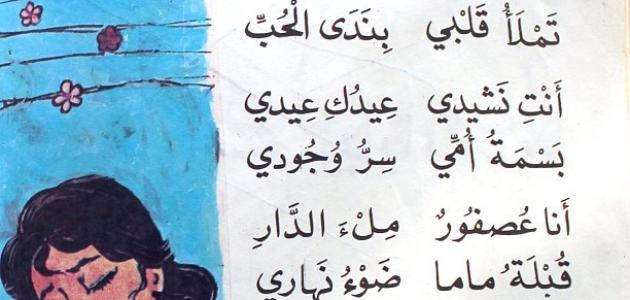 تَمْلَأُ قَلْبي بِنَدَى الْحُبِّ
أَنْتِ نَشيدي عِيدُكِ عِيدي
بَسْمَةُ أُمِّي سِرُّ وُجُودي
أَنا عُصفُورٌ مِلْءَ الدَّارِ
قُبْلَةُ ماما ضَوْءُ نَهاري